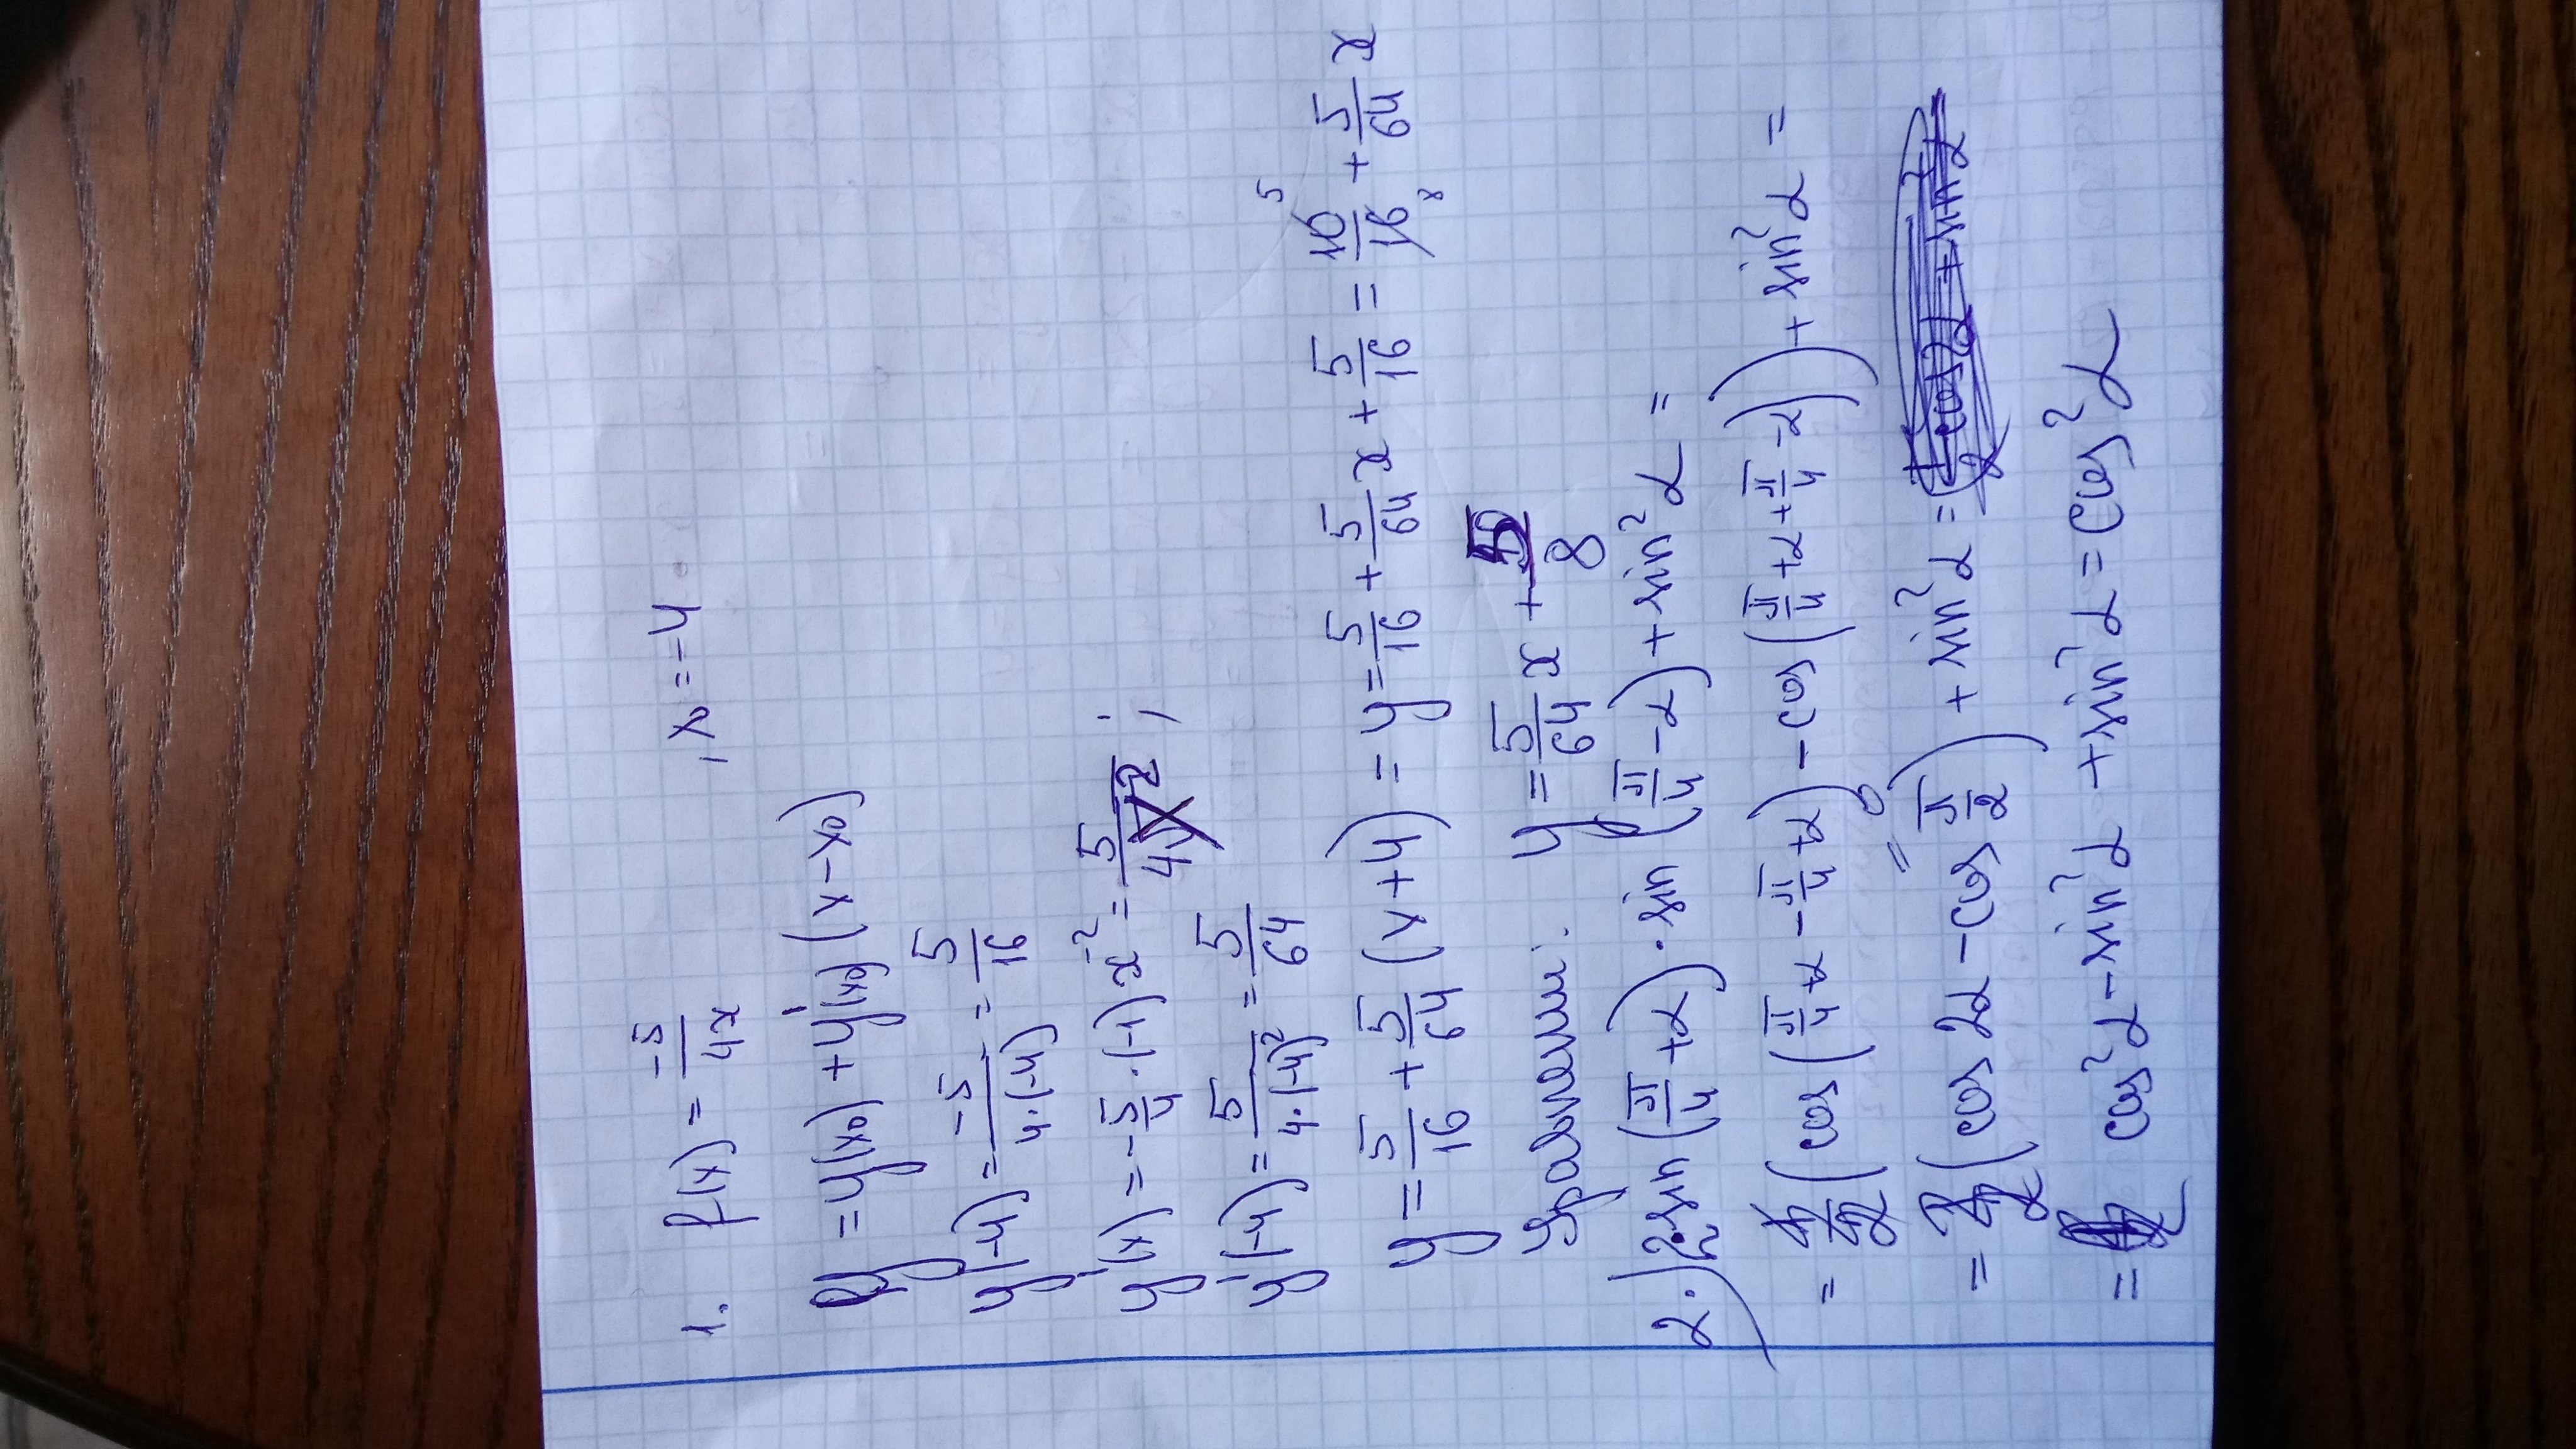 1. f(x) = -5/4x , x₀ = -4
y = y(x₀) + y'(x₀) (x - x₀)
y(-4) = -5/4·(-4) = 5/16
y'(x) = -5/4 · (-1) x⁻² = 5/4x² ;
y'(-4) = 5/4·(-4)² = 5/64
y = 5/16 + 5/64 (x+4) = y = 5/16 + 5/64 x + 5/16 = 10/16 + 5/64 x
5 8
y = 5/64 x + 5/8
2.) 2·sin (π/4 + α) · sin (π/4 - α) + sin² α =
= 2/2 (cos (π/4 + α - π/4 + α) - cos (π/4 + α + π/4 - α)) + sin² α =
= 2/2 (cos 2α - cos π/2) + sin² α =
0
= cos² α - sin² α + sin² α = cos² α